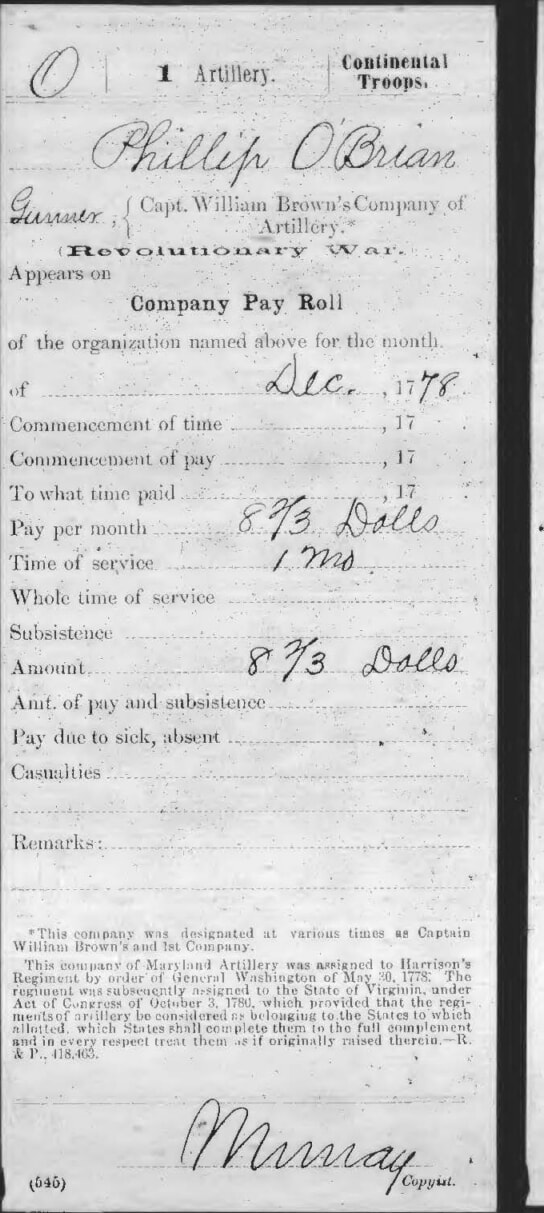 O | 1 Artillery. | Continental Troops.
Phillip O'Brian
Gunner, { Capt. William Brown's Company of
Artillery.*
(Revolutionary War.
Appears on
Company Pay Roll
of the organization named above for the month
of Dec. , 1778.
Commencement of time , 17 .
Commencement of pay , 17 .
To what time paid , 17 .
Pay per month 8 2/3 Dolls
Time of service 1 Mo
Whole time of service
Subsistence
Amount 8 2/3 Dolls
Amt. of pay and subsistence
Pay due to sick, absent
Casualties
Remarks:
*This company was designated at various times as Captain
William Brown's and 1st Company.
This company of Maryland Artillery was assigned to Harrison's
Regiment by order of General Washington of May 30, 1778. The
regiment was subsequently assigned to the State of Virginia, under
Act of Congress of October 3, 1780, which provided that the regi-
ments of artillery be considered as belonging to the States to which
allotted, which States shall complete them to the full complement
and in every respect treat them as if originally raised therein.—R.
& P., 418,463.
Murray
(545) Copyist.